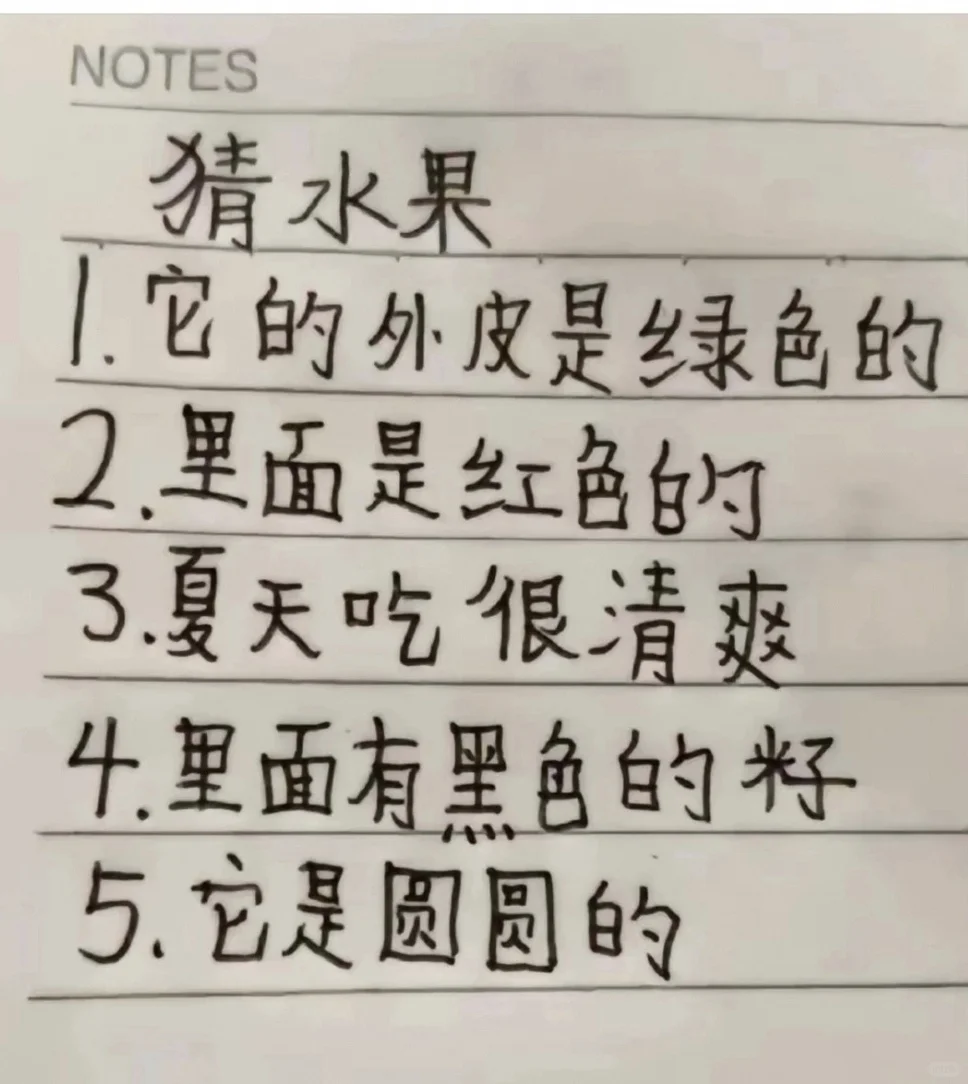 NOTES
猜水果
1.它的外皮是绿色的
2.里面是红色的
3.夏天吃很清爽
4.里面有黑色的籽
5.它是圆圆的